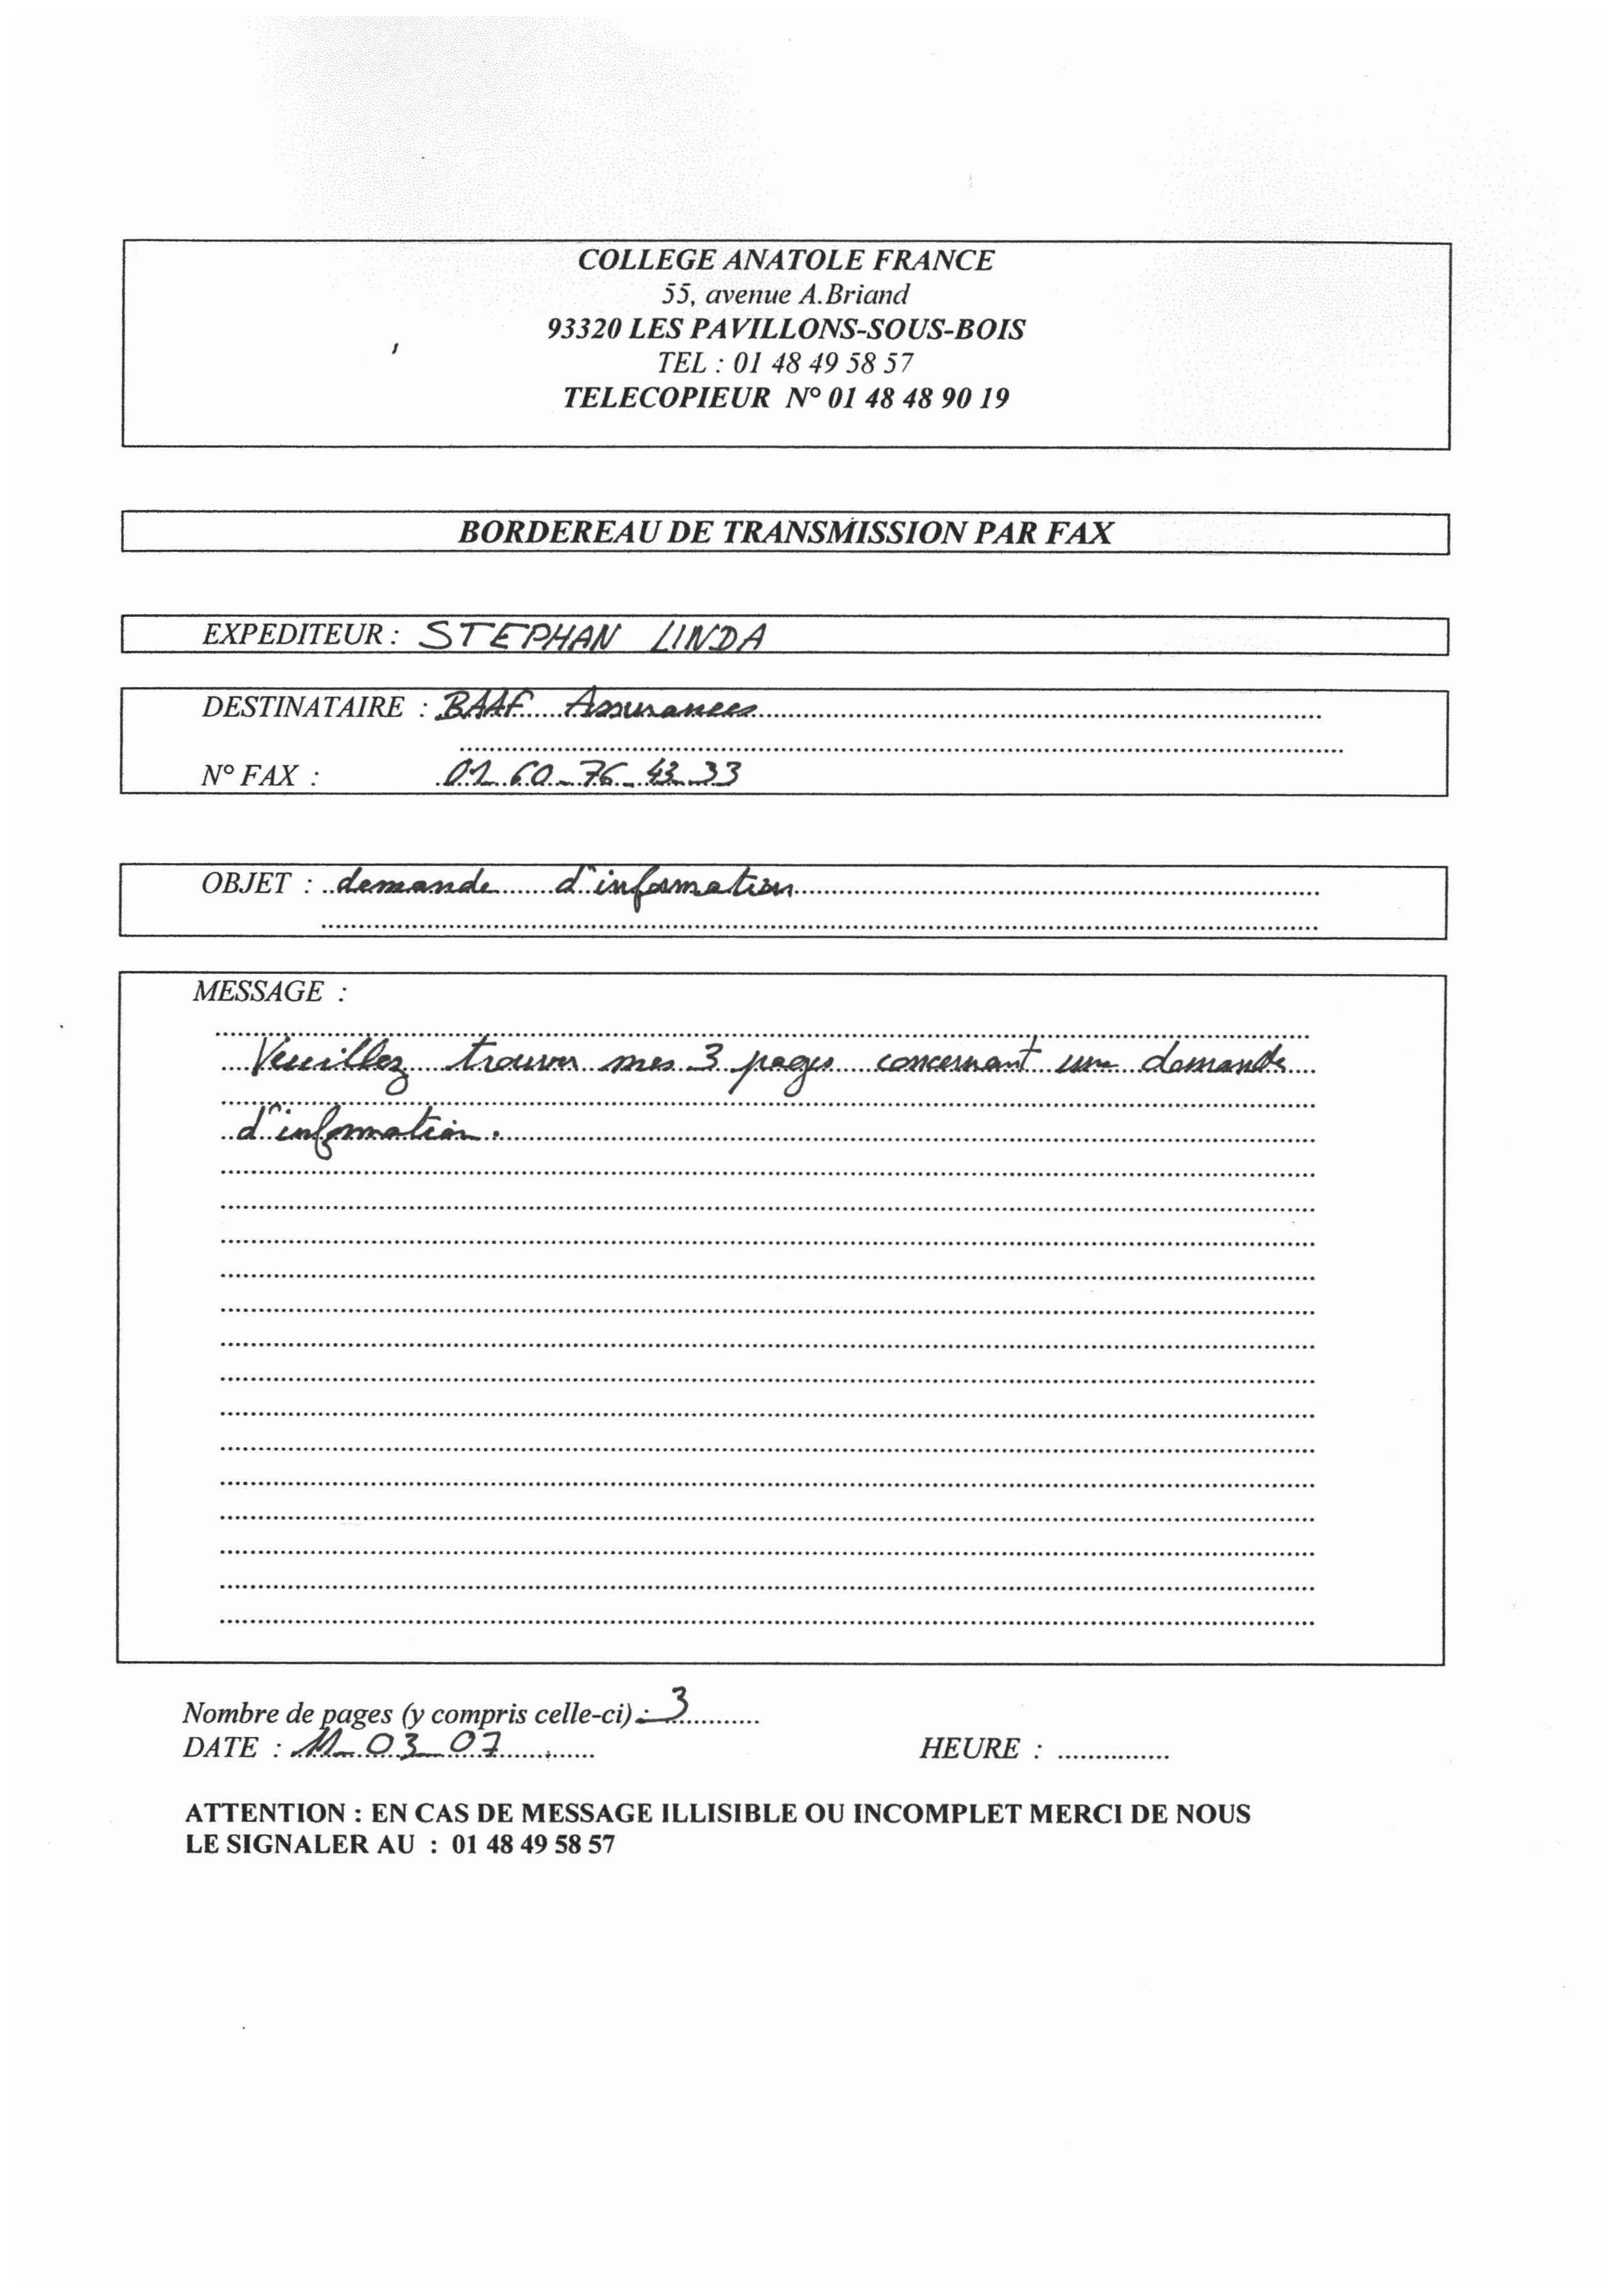 COLLEGE ANATOLE FRANCE
55, avenue A.Briand
93320 LES PAVILLONS-SOUS-BOIS
TEL : 01 48 49 58 57
TELECOPIEUR N° 01 48 48 90 19
BORDEREAU DE TRANSMISSION PAR FAX
EXPEDITEUR : STEPHAN LINDA
DESTINATAIRE : BAAF Assurances
N° FAX : 01_60_76_43_33
OBJET : demande d'information
MESSAGE :
Veuillez trouver mes 3 pages concernant une demande
d'information.
Nombre de pages (y compris celle-ci) : 3
DATE : 11_03_07 HEURE :
ATTENTION : EN CAS DE MESSAGE ILLISIBLE OU INCOMPLET MERCI DE NOUS
LE SIGNALER AU : 01 48 49 58 57